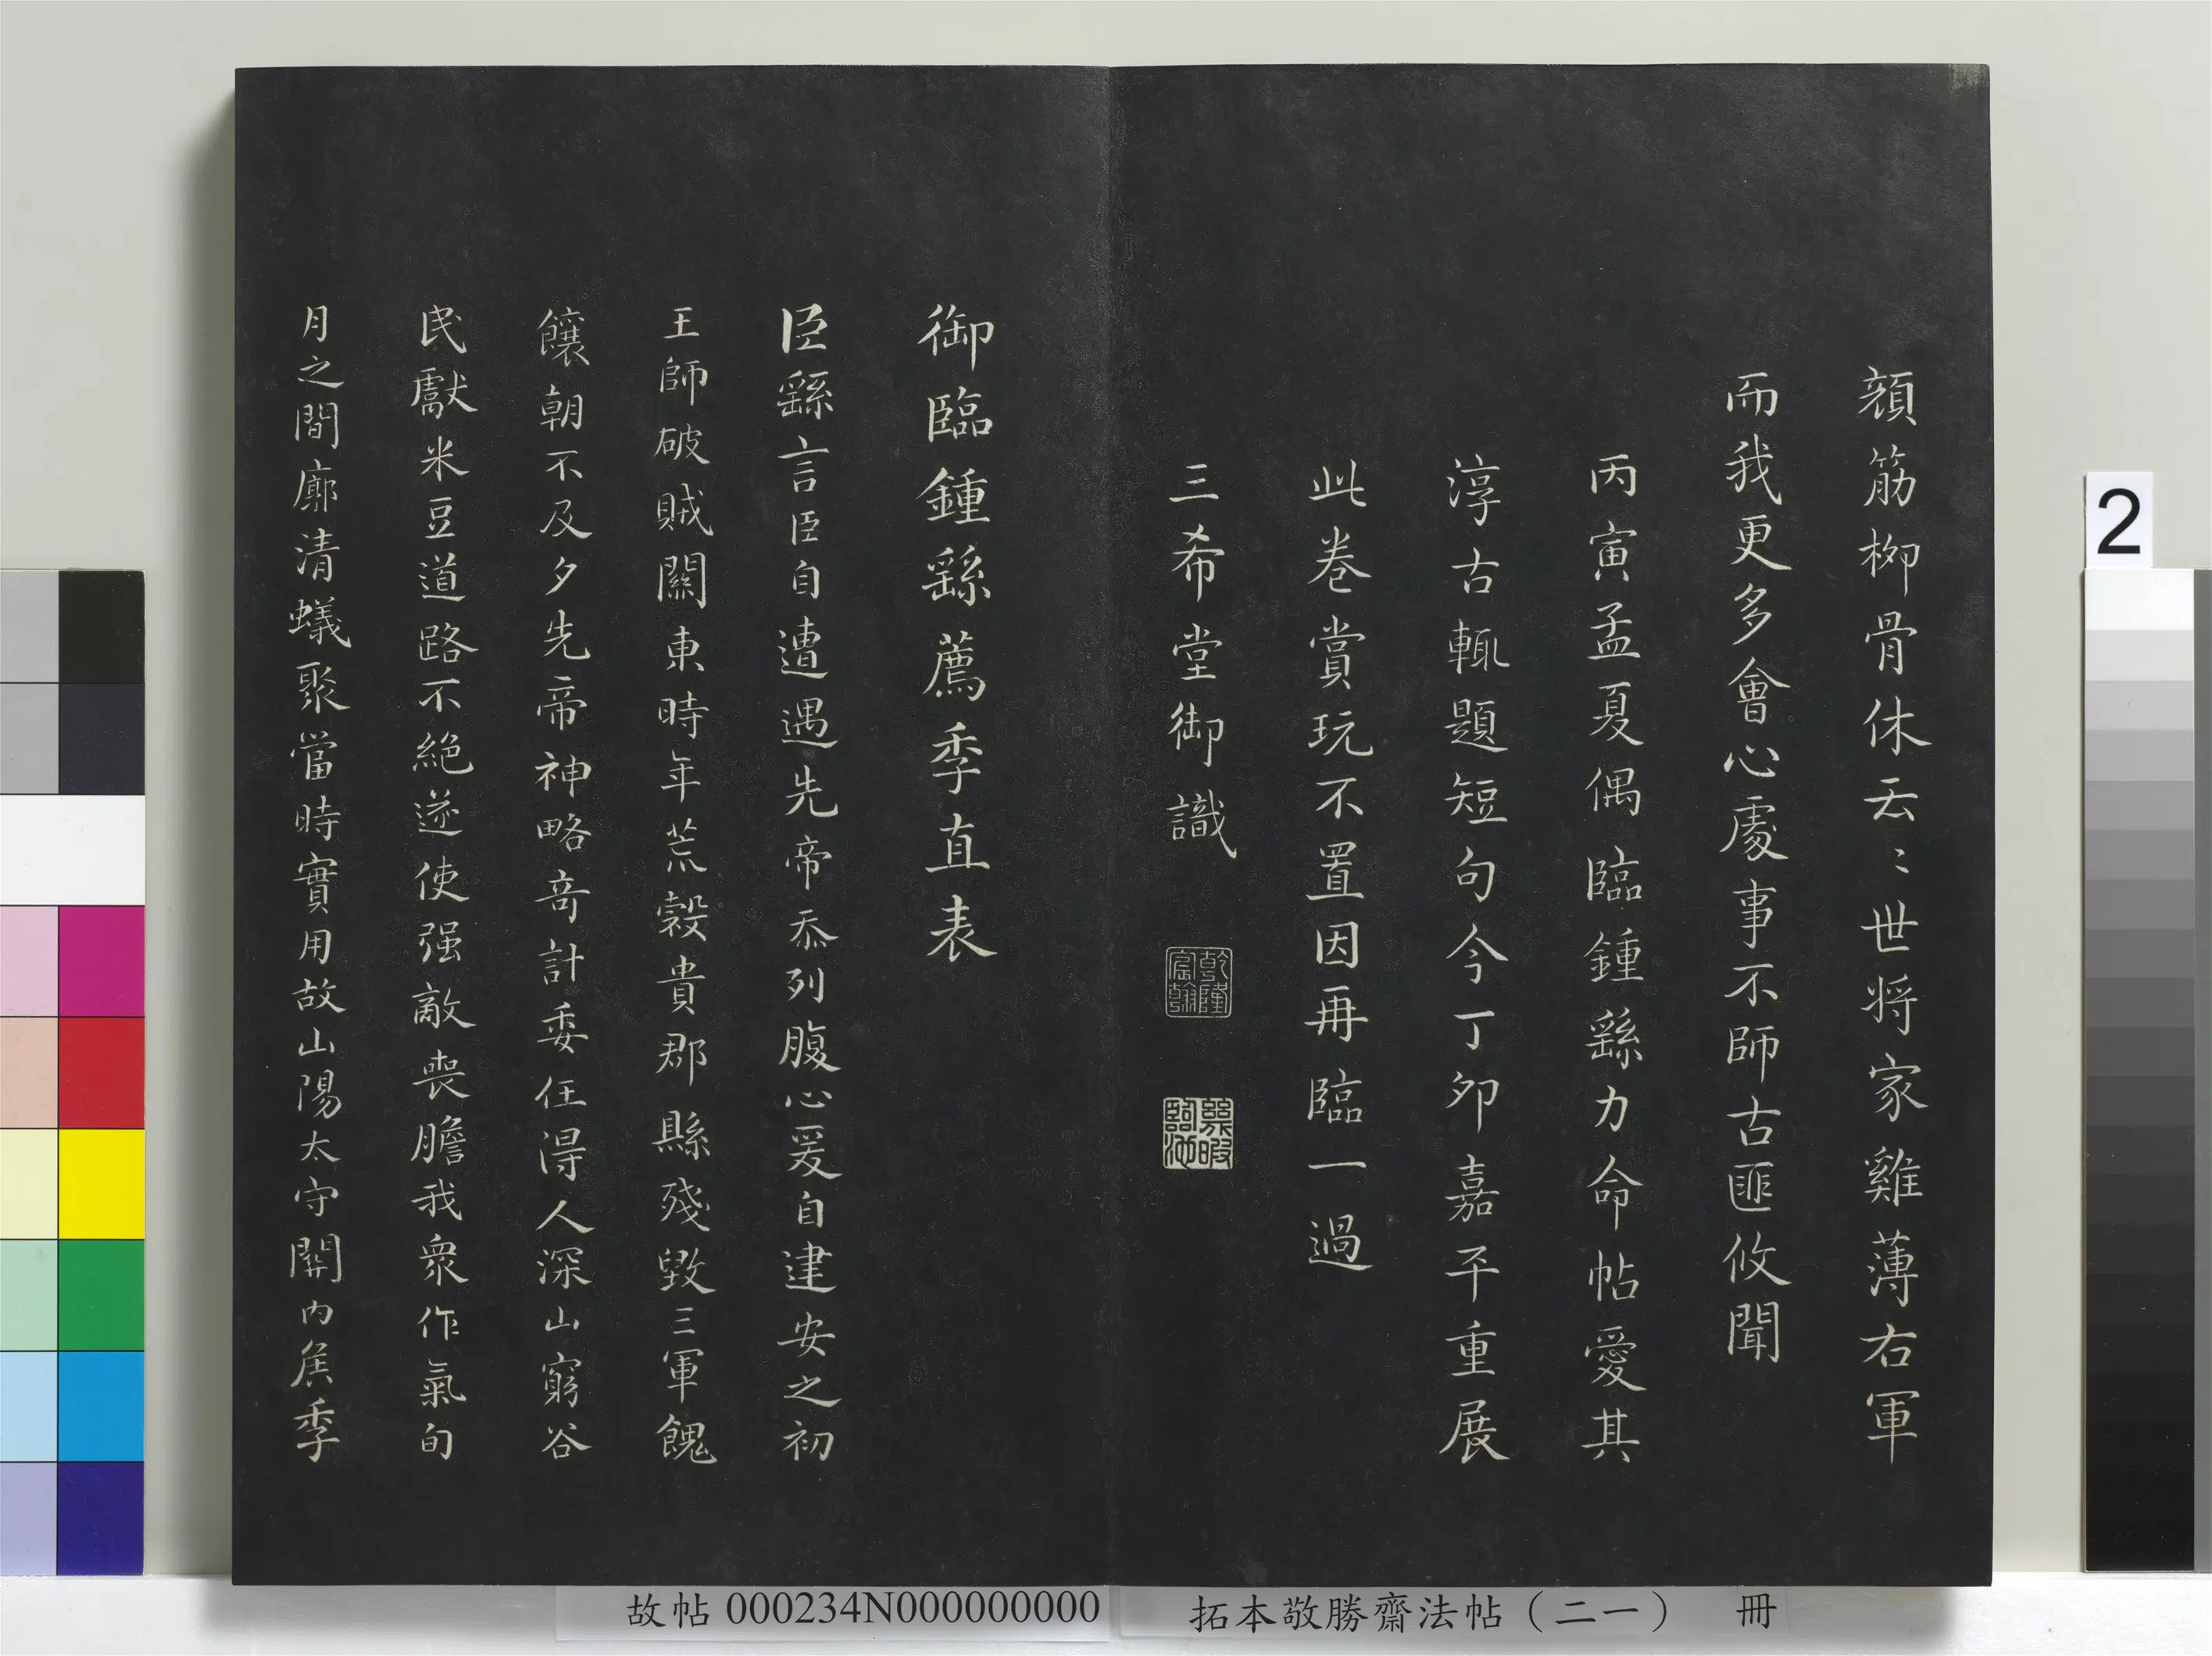 顔筋柳骨休云〻世将家雞薄右軍
而我更多會心處事不師古匪攸聞
丙寅孟夏偶臨鍾繇力命帖愛其
淳古輒題短句今丁卯嘉平重展
此卷賞玩不置因再臨一過
三希堂御識
乾隆宸翰
幾暇臨池
御臨鍾繇薦季直表
臣繇言臣自遭遇先帝忝列腹心爰自建安之初
王師破賊關東時年荒穀貴郡縣殘毀三軍餽
饟朝不及夕先帝神略奇計委任得人深山窮谷
民獻米豆道路不絕遂使强敵喪膽我衆作氣旬
月之間廓清蟻聚當時實用故山陽太守關內侯季
2
故帖 000234N000000000
拓本敬勝齋法帖（二一） 冊